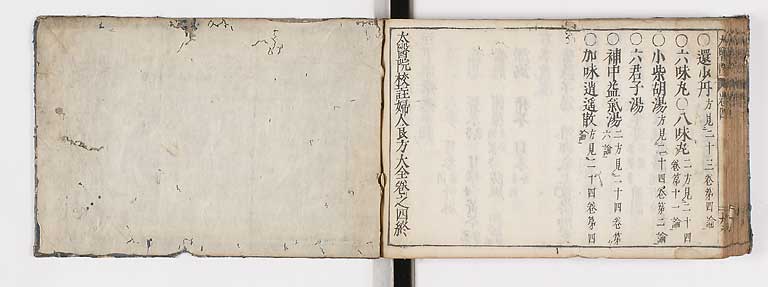 〇還少丹方見二十三卷第四論
〇六味丸〇八味丸二方見二十四卷第十一論
〇小柴胡湯方見二十四卷第二論
〇六君子湯
〇補中益氣湯二方見二十四卷第六論
〇加味逍遥散方見二十四卷第四
太醫院校註婦人良方大全卷之四終